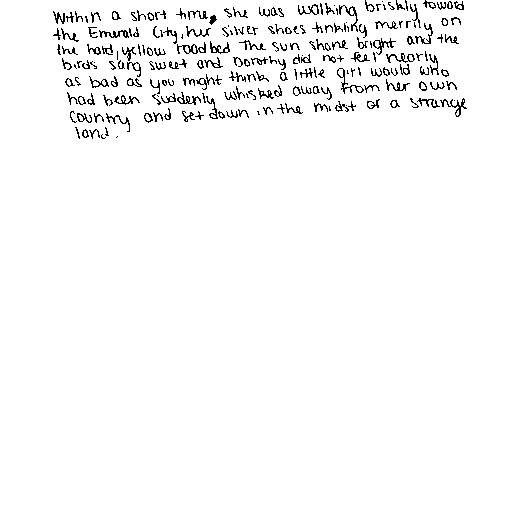 Within a short time, she was walking briskly toward
the Emerald City, her silver shoes tinkling merrily on
the hard, yellow roadbed The sun shone bright and the
birds sang sweet and Dorothy did not feel nearly
as bad as you might think a little girl would who
had been suddenly whisked away from her own
country and set down in the midst of a strange
land.